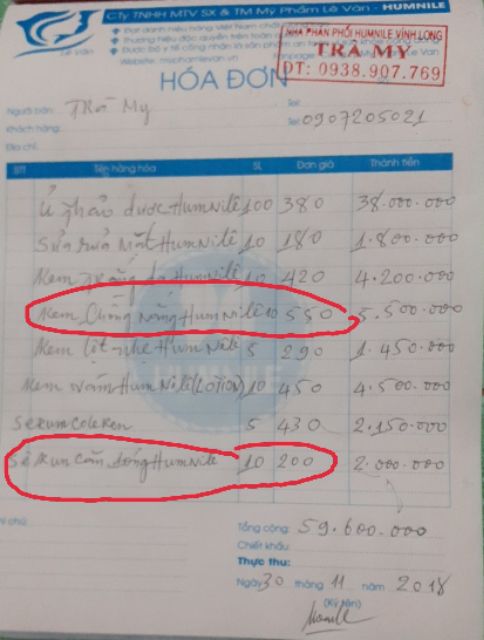 Cty TNHH MTV SX & TM Mỹ Phẩm Lê Vân - HUMNILE
Đạt danh hiệu hàng Việt Nam chất
Thương hiệu độc quyền trên toàn
Được bộ y tế công nhận là sản phẩm an
Website: myphamlevan.vn
Lê Vân
NHÀ PHÂN PHỐI HUMNILE VĨNH LONG
TRÀ MY
ĐT: 0938.907.769
HÓA ĐƠN
Người bán: Trà My Tel:
Khách hàng: Tel: 0907205021
Địa chỉ:
STT Tên hàng hóa SL Đơn giá Thành tiền
Ủ thảo dược HumNile 100 380 38.000.000
Sữa rửa mặt HumNile 10 180 1.800.000
Kem trắng da HumNile 10 420 4.200.000
Kem Chống Nắng HumNile 10 550 5.500.000
Kem lót nhẹ HumNile 5 290 1.450.000
Kem HumNile (LOTION) 10 450 4.500.000
Serum 5 430 2.150.000
HUMNILE
Sêrun căn bóng HumNile 10 200 2.000.000
Ghi chú: Tổng cộng: 59.600.000
Chiết khấu:
Thực thu:
Ngày 30 tháng 11 năm 2018
(Ký tên)